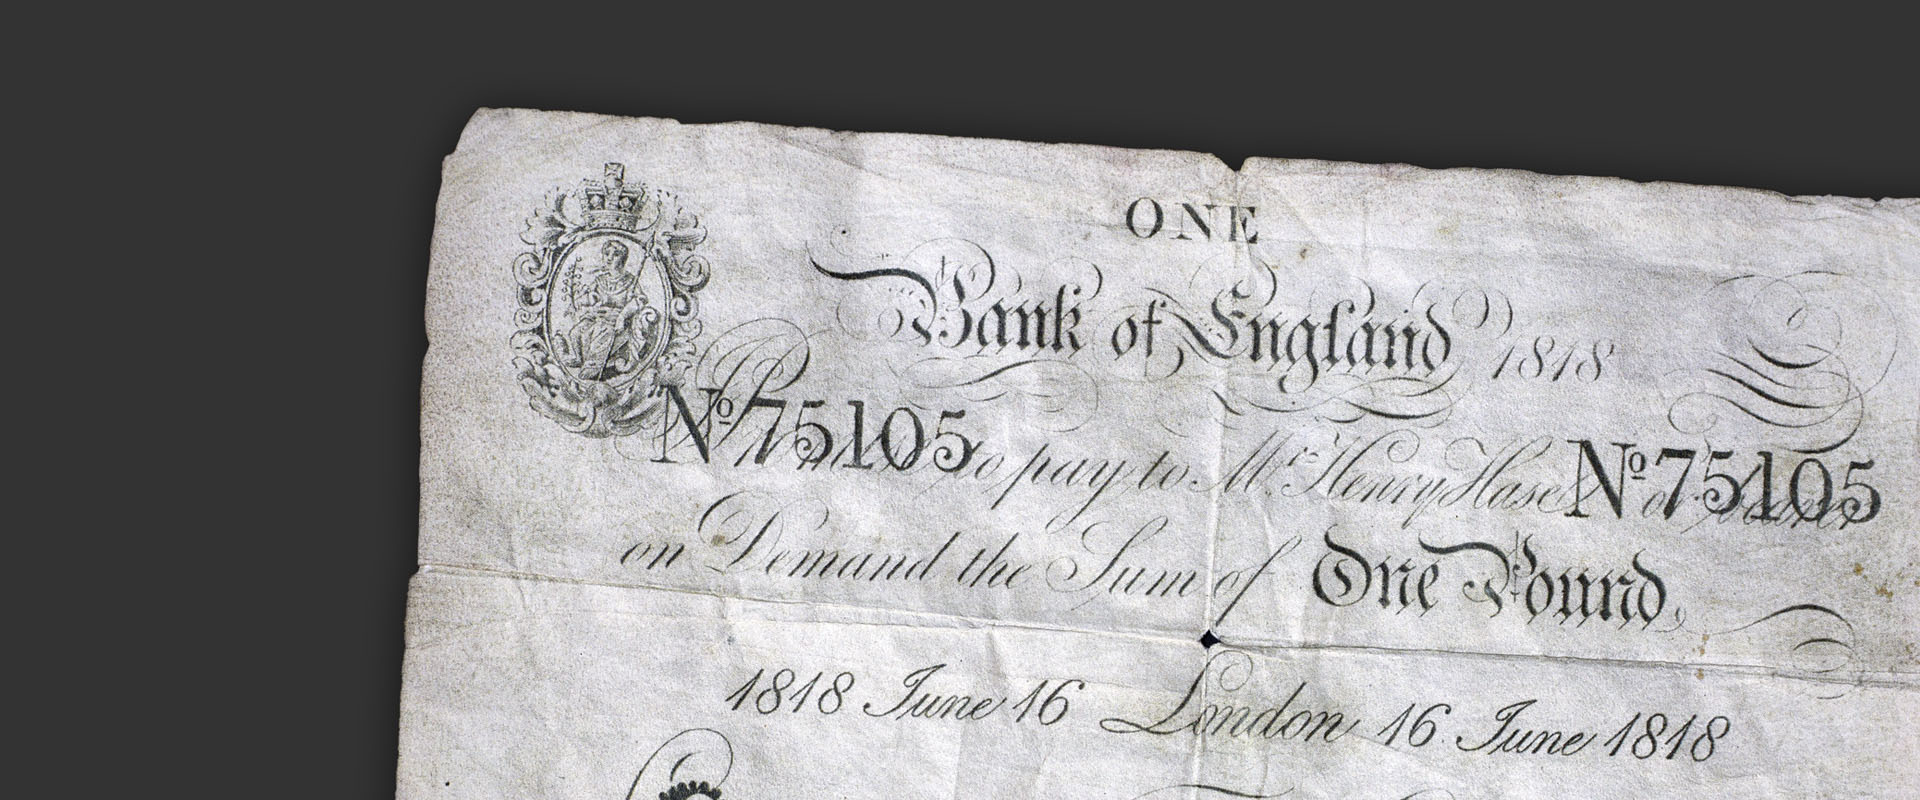 ONE
Bank of England 1818
Nº 75105 to pay to Mr. Henry Hase Nº 75105
on Demand the Sum of One Pound.
1818 June 16 London 16 June 1818